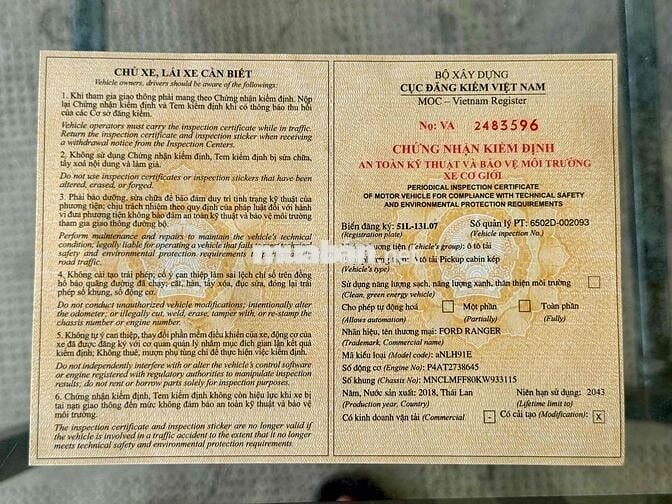 CHỦ XE, LÁI XE CẦN BIẾT
Vehicle owners, drivers should be aware of the followings:
1. Khi tham gia giao thông phải mang theo Chứng nhận kiểm định. Nộp
lại Chứng nhận kiểm định và Tem kiểm định khi có thông báo thu hồi
của các Cơ sở đăng kiểm.
Vehicle operators must carry the inspection certificate while in traffic.
Return the inspection certificate and inspection sticker when receiving
a withdrawal notice from the Inspection Centers.
2. Không sử dụng Chứng nhận kiểm định, Tem kiểm định bị sửa chữa,
tẩy xoá nội dung và làm giả.
Do not use inspection certificates or inspection stickers that have been
altered, erased, or forged.
3. Phải bảo dưỡng, sửa chữa để bảo đảm duy trì tình trạng kỹ thuật của
phương tiện; chịu trách nhiệm theo quy định của pháp luật đối với hành
vi đưa phương tiện không bảo đảm an toàn kỹ thuật và bảo vệ môi trường
tham gia giao thông đường bộ.
Perform maintenance and repairs to maintain the vehicle's technical
condition; legally liable for operating a vehicle that fails
safety and environmental protection requirements
road traffic.
4. Không cải tạo trái phép; cố ý can thiệp làm sai lệch chỉ số trên đồng
hồ báo quãng đường đã chạy; cắt, hàn, tẩy xóa, đục sửa, đóng lại trái
phép số khung, số động cơ.
Do not conduct unauthorized vehicle modifications; intentionally alter
the odometer; or illegally cut, weld, erase, tamper with, or re-stamp the
chassis number or engine number.
5. Không tự ý can thiệp, thay đổi phần mềm điều khiển của xe, động cơ của
xe đã được đăng ký với cơ quan quản lý nhằm mục đích gian lận kết quả
kiểm định; Không thuê, mượn phụ tùng chỉ để thực hiện việc kiểm định.
Do not independently interfere with or alter the vehicle's control software
or engine registered with regulatory authorities to manipulate inspection
results; do not rent or borrow parts solely for inspection purposes.
6. Chứng nhận kiểm định, Tem kiểm định không còn hiệu lực khi xe bị
tai nạn giao thông đến mức không đảm bảo an toàn kỹ thuật và bảo vệ
môi trường.
The inspection certificate and inspection sticker are no longer valid if
the vehicle is involved in a traffic accident to the extent that it no longer
meets technical safety and environmental protection requirements.
BỘ XÂY DỰNG
CỤC ĐĂNG KIỂM VIỆT NAM
MOC – Vietnam Register
No: VA 2483596
CHỨNG NHẬN KIỂM ĐỊNH
AN TOÀN KỸ THUẬT VÀ BẢO VỆ MÔI TRƯỜNG
XE CƠ GIỚI
PERIODICAL INSPECTION CERTIFICATE
OF MOTOR VEHICLE FOR COMPLIANCE WITH TECHNICAL SAFETY
AND ENVIRONMENTAL PROTECTION REQUIREMENTS
Biển đăng ký: 51L-131.07 Số quản lý PT: 6502D-002093
(Registration plate) (Vehicle inspection No.)
tiện (Vehicle's group): ô tô tải
ô tô tải Pickup cabin kép
(Vehicle's type)
Sử dụng năng lượng sạch, năng lượng xanh, thân thiện môi trường
(Clean, green energy vehicle)
Cho phép tự động hoá Một phần Toàn phần
(Allows automation) (Partially) (Fully)
Nhãn hiệu, tên thương mại: FORD RANGER
(Trademark, Commercial name)
Mã kiểu loại (Model code): aNLH91E
Số động cơ (Engine No): P4AT2738645
Số khung (Chassis No): MNCLMFF80KW933115
Năm, Nước sản xuất: 2018, Thái Lan Niên hạn sử dụng: 2043
(Production year, Country) (Lifetime limit to)
Có kinh doanh vận tải (Commercial - Có cải tạo (Modification): X